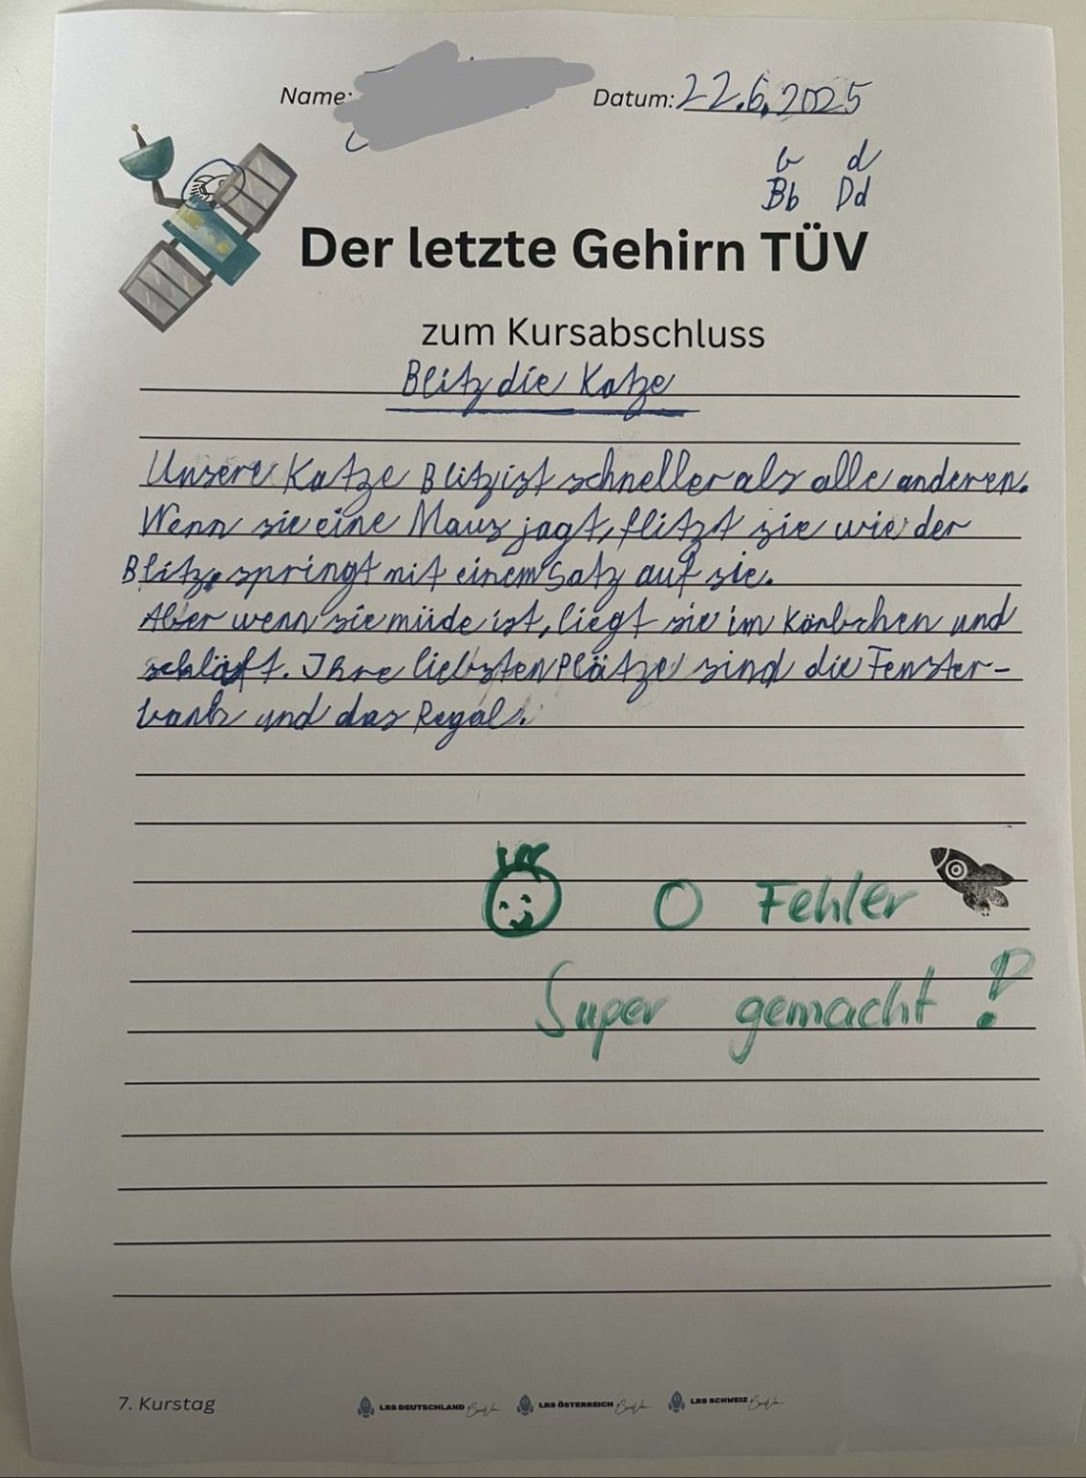 Name:
Datum: 22.6.2025
b d
Bb Dd
Der letzte Gehirn TÜV
zum Kursabschluss
Blitz die Katze
Unsere Katze Blitz ist schneller als alle anderen.
Wenn sie eine Maus jagt, flitzt sie wie der
Blitz, springt mit einem Satz auf sie.
Aber wenn sie müde ist, liegt sie im Körbchen und
schläft. Ihre liebsten Plätze sind die Fenster-
bank und das Regal.
0 Fehler
Super gemacht!
7. Kurstag
LRS DEUTSCHLAND LRS ÖSTERREICH LRS SCHWEIZ